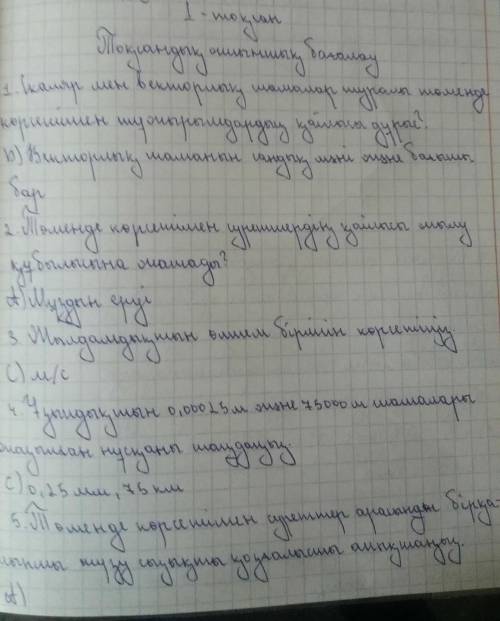 1-тоқсан
Тоқсандық жиынтық бағалау
1. Скаляр мен векторлық шамалар туралы төменде
көрсетілген тұжырымдардың қайсысы дұрыс?
D) Векторлық шаманын сандық мәні және бағыты
бар
2. Төменде көрсетілген суреттердің қайсысы жылу
құбылысына жатады?
A) Мұздын еруі
3. Жылдамдықтын өлшем бірлігін көрсетіңіз.
C) м/с
4. Ұзындықтын 0,00025м және 75000м шамалары
жазылған нұсқаны таңдаңыз.
C) 0,25мм, 75км
5. Төменде көрсетілген суреттер арасынан бірқа-
лыпты түзу сызықты қозғалысты анықтаңыз.
A)